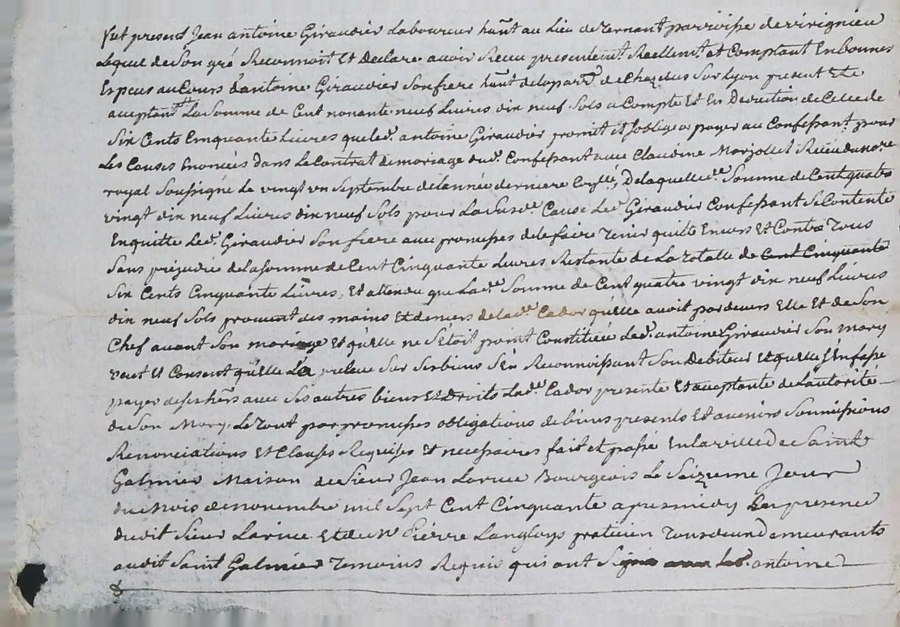 fut present Jean antoine Giraudier Laboureur hañt au Lieu de ternant parroisse de virignieu
Lequel de Son gré Reconnoit Et Declare avoir Receu presentemt. Reellemt. et Comptant En bonnes
Especes au Cours d'antoine Giraudier Son frere hañt de la parr. de Chazelles Sur Lyon present Et
acceptant La Somme de Cent nonante neuf Livres dix neuf Sols a Compte Et En Deduction de Celle de
Six Cents Cinquante Livres que led. antoine Giraudier promit et s'obligea payer au Confessant. pour
Les Causes Enoncées Dans Le Contrat de mariage dud. Confessant avec Claudine Marjollet Receu du nore
royal Soussigné Le vingt un Septembre de l'année derniere De laquelle de. Somme de Cent quatre
vingt dix neuf Livres dix neuf Sols pour La Susd. Cause Led. Giraudier Confessant Se Contente
En quitte Led. Giraudier Son frere avec promesses de le faire tenir quitte Envers Et Contre Tous
Sans prejudice de la Somme de Cent Cinquante Livres Restante de La totalle de Cent Cinquante
Six Cents Cinquante Livres, Et attendu que Lade. Somme de Cent quatre vingt dix neuf Livres
dix neuf Sols provient des mains Et deniers de lade. Cador qu'elle avoit par devers Elle Et de Son
Chef avant Son mariage Et qu'elle ne S'etoit point Constituée Led. antoine Giraudier Son mary
veut Et Consent qu'elle La preleve Sur Ses biens S'En Reconnoissant Son Debiteur Et qu'elle S'En fasse
payer de Ses hers avec Ses autres biens Et Droits Lade. Cador presente Et acceptante de L'autorité
de Son Mary. Le tout par promesses obligations de biens presents Et avenirs Soumissions
Renonciations Et Clauses Requises Et necessaires fait et passé En la ville de Saint
Galmier Maison de Sieur Jean Larue Bourgeois Le Seizieme Jour
du Mois de novembre mil Sept Cent Cinquante apres midy En presence
dudit Sieur Larue Et de Mr Pierre Langloys praticien Tous deux demeurants
audit Saint Galmier Temoins Requis qui ont antoine